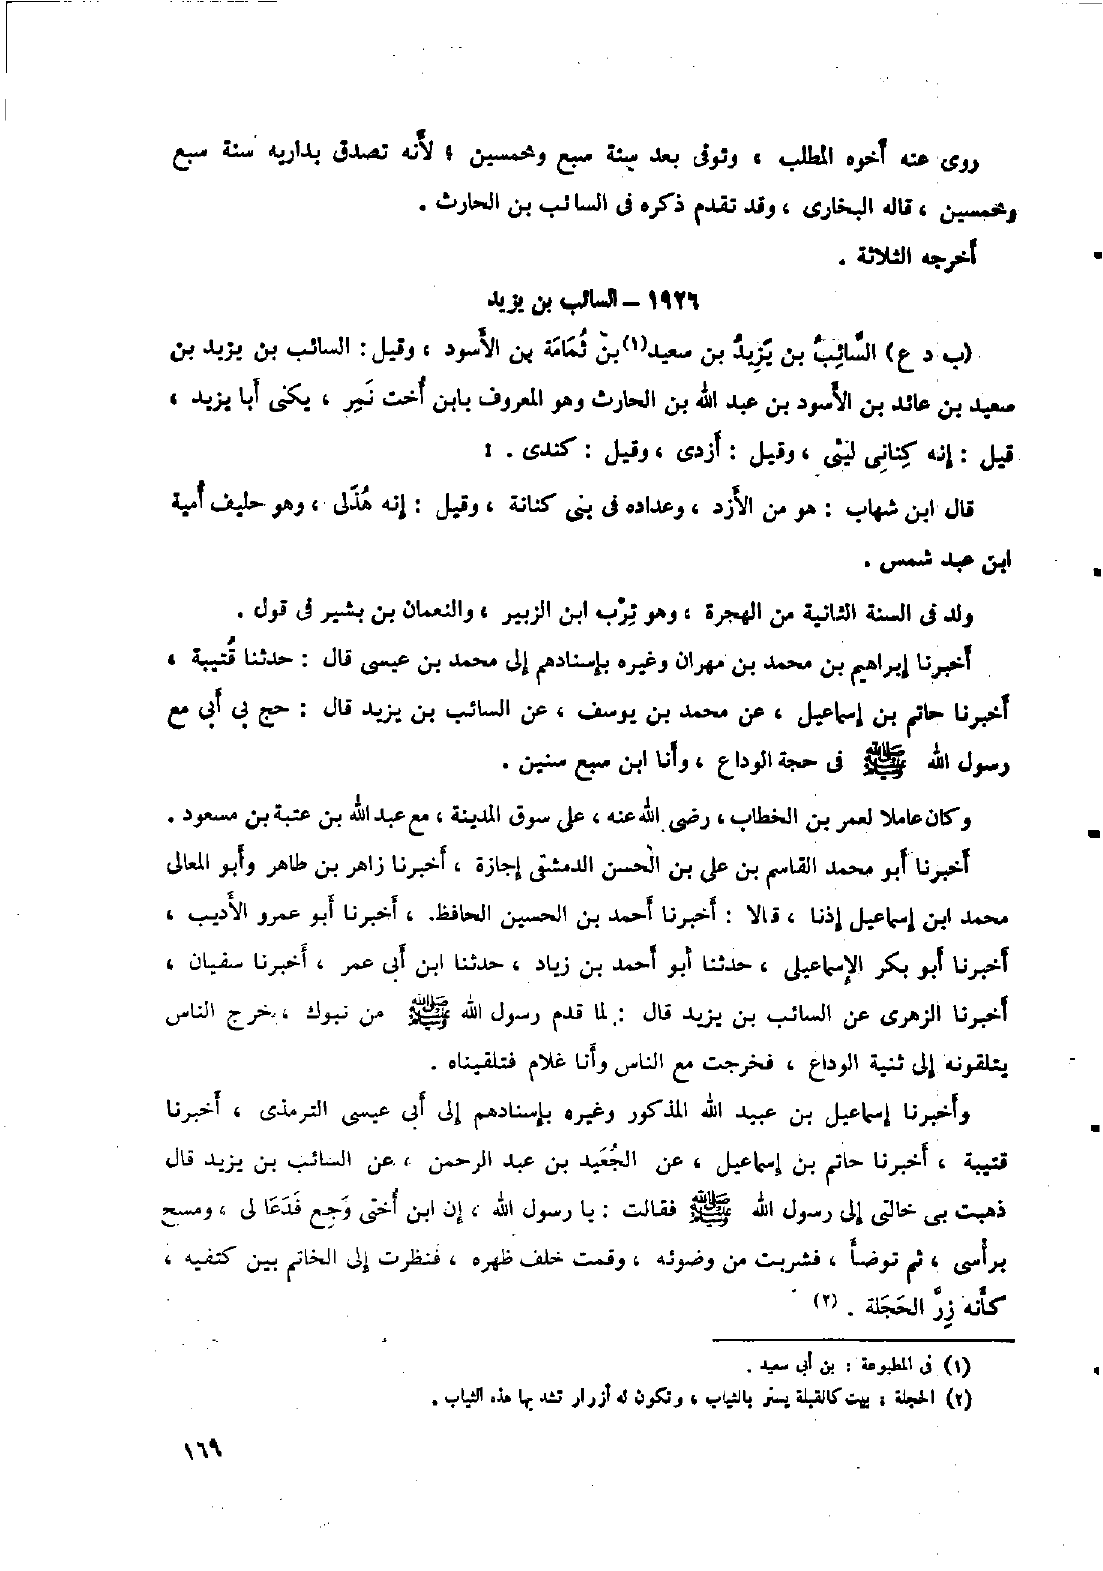 روى عنه أخوه المطلب ، وتوفى بعد سنة سبع وخمسين ؛ لأنه تصدق بداريه سنة سبع
وخمسين ، قاله البخارى ، وقد تقدم ذكره فى السائب بن الحارث .
أخرجه الثلاثة .
١٩٢٦ – السائب بن يزيد
(ب د ع) السَّائِبُ بن يَزِيدُ بن سعيد(١) بنْ ثُمَامَة بن الأَسود ، وقيل : السائب بن يزيد بن
سعيد بن عائد بن الأَسود بن عبد الله بن الحارث وهو المعروف بابن أُخت نَمِر ، يكنى أَبا يزيد ،
قيل : إنه كِنانِى لَيْثى ، وقيل : أَزدى ، وقيل : كندى .
قال ابن شهاب : هو من الأَزد ، وعداده فى بنى كنانة ، وقيل : إنه هُذَلى ، وهو حليف أُمية
ابن عبد شمس .
ولد فى السنة الثانية من الهجرة ، وهو تِرْب ابن الزبير ، والنعمان بن بشير فى قول .
أَخبرنا إبراهيم بن محمد بن مهران وغيره بإسنادهم إلى محمد بن عيسى قال : حدثنا قُتيبة ،
أَخبرنا حاتم بن إسماعيل ، عن محمد بن يوسف ، عن السائب بن يزيد قال : حج بى أَبى مع
رسول الله ﷺ فى حجة الوداع ، وأَنا ابن سبع سنين .
وكان عاملا لعمر بن الخطاب ، رضى الله عنه ، على سوق المدينة ، مع عبد الله بن عتبة بن مسعود .
أَخبرنا أَبو محمد القاسم بن على بن الْحسن الدمشقى إجازة ، أَخبرنا زاهر بن طاهر وأَبو المعالى
محمد ابن إسماعيل إذنا ، قالا : أَخبرنا أَحمد بن الحسين الحافظ ، أَخبرنا أَبو عمرو الأَديب ،
أَخبرنا أَبو بكر الإسماعيلى ، حدثنا أَبو أَحمد بن زياد ، حدثنا ابن أَبى عمر ، أَخبرنا سفيان ،
أَخبرنا الزهرى عن السائب بن يزيد قال : لما قدم رسول الله ﷺ من تبوك ، خرج الناس
يتلقونه إلى ثنية الوداع ، فخرجت مع الناس وأَنا غلام فتلقيناه .
وأَخبرنا إسماعيل بن عبيد الله المذكور وغيره بإسنادهم إلى أَبى عيسى الترمذى ، أَخبرنا
قتيبة ، أَخبرنا حاتم بن إسماعيل ، عن الجُعَيد بن عبد الرحمن ، عن السائب بن يزيد قال
ذهبت بى خالتى إلى رسول الله ﷺ فقالت : يا رسول الله ، إن ابن أُختى وَجِع فَدَعَا لى ، ومسح
برأْسى ، ثم توضأَ ، فشربت من وضوئه ، وقمت خلف ظهره ، فنظرت إلى الخاتم بين كتفيه ،
كأَنه زِرَّ الحَجَلة . (٢)
(١) فى المطبوعة : بن أبى سعيد .
(٢) الحجلة : بيت كالقبلة يستر بالثياب ، وتكون له أزرار تشد بها هذه الثياب .
١٦٩